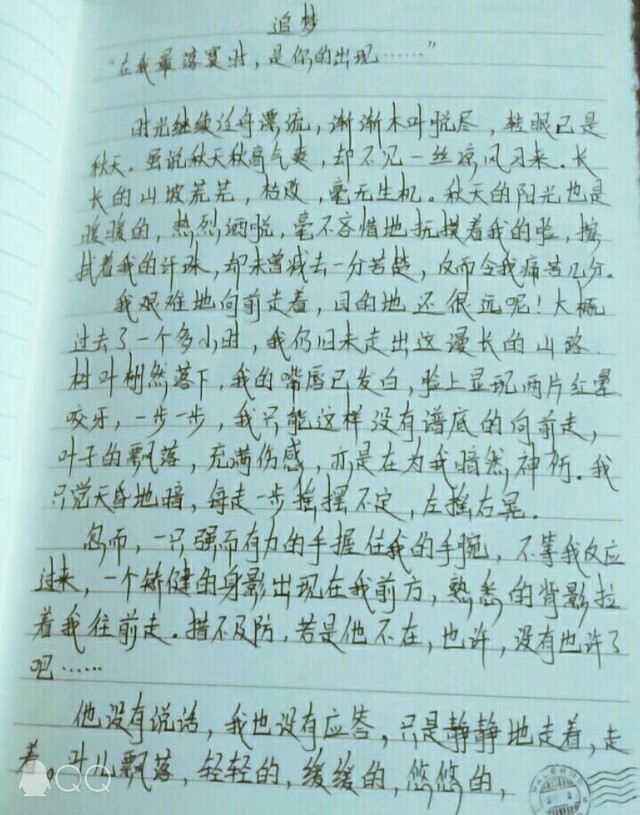 追梦
“在我最落寞时，是你的出现……”
时光继续这舟漂流，渐渐木叶脱尽，转眼已是
秋天。虽说秋天秋高气爽，却不见一丝凉风习来。长
长的山坡荒芜，枯败，毫无生机。秋天的阳光也是
暖暖的，热烈洒脱，毫不吝惜地抚摸着我的脸，擦
拭着我的汗珠，却未曾减去一分苦楚，反而令我痛苦几分。
我艰难地向前走着，目的地还很远呢！大概
过去了一个多小时，我仍旧未走出这漫长的山路
树叶翩然落下，我的嘴唇已发白，脸上显现两片红晕
咬牙，一步一步，我只能这样没有谱底的向前走，
叶子的飘落，充满伤感，亦是在为我暗然神伤。我
只觉天昏地暗，每走一步摇摆不定，左摇右晃。
忽而，一只强而有力的手握住我的手腕，不等我反应
过来，一个矫健的身影出现在我前方，熟悉的背影拉
着我往前走。措不及防，若是他不在，也许，没有也许了
吧……
他没有说话，我也没有应答，只是静静地走着，走
着。叶儿飘落，轻轻的，缓缓的，悠悠的，
QQ